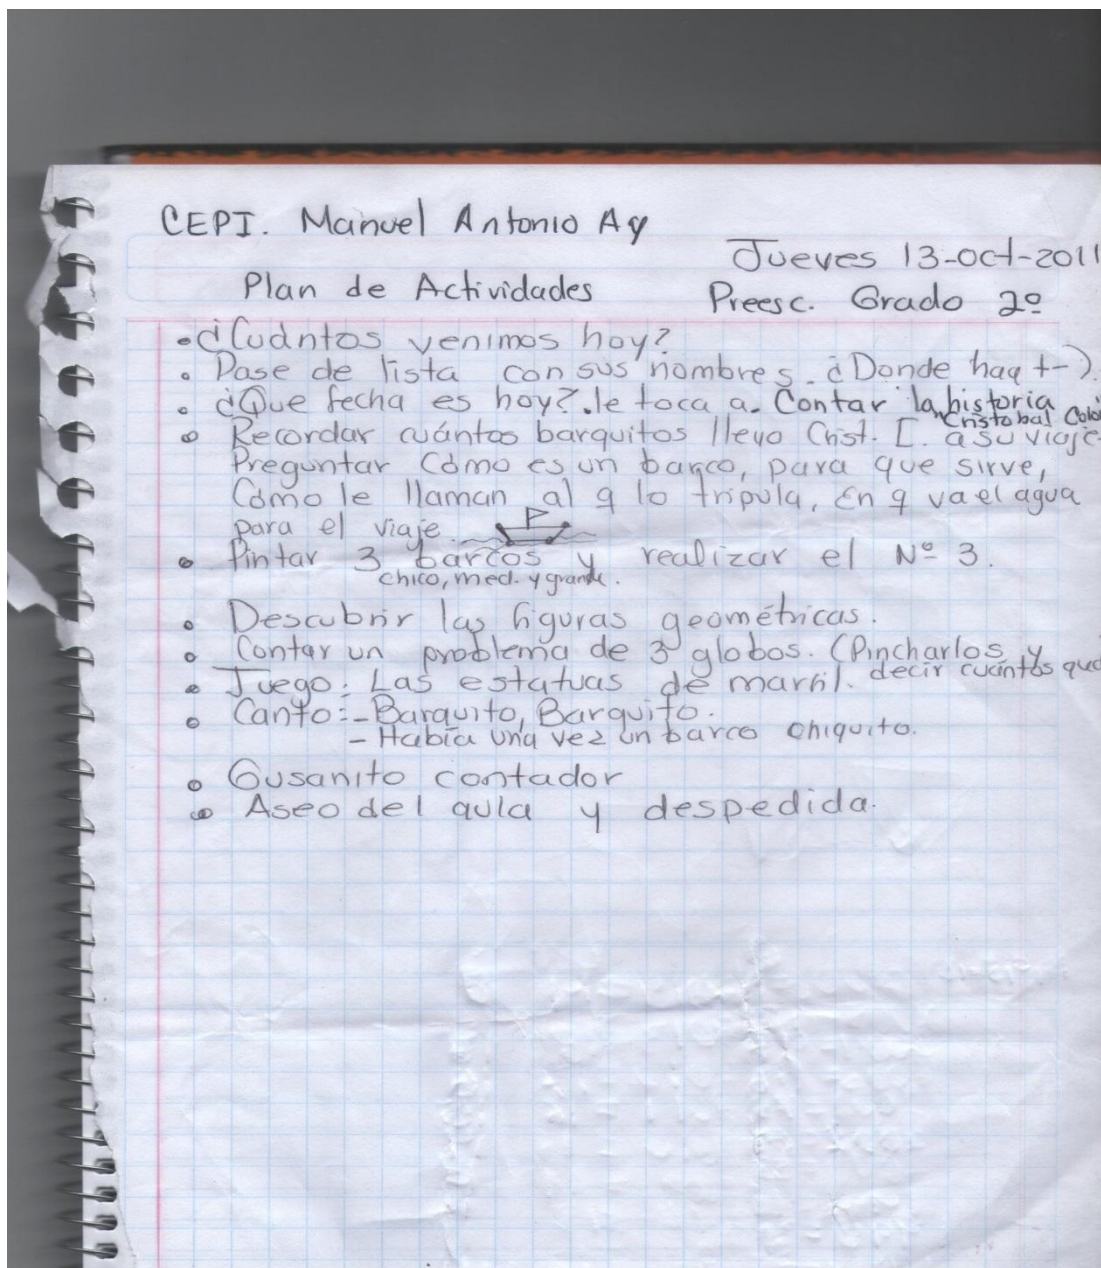 CEPI. Manuel Antonio Ay
Jueves 13-oct-2011
Plan de Actividades Preesc. Grado 2º
• ¿Cuántos venimos hoy?
• Pase de lista con sus nombres. ¿Donde hay +-).
• ¿Que fecha es hoy?. le toca a. Contar la historia
Cristobal Colo
• Recordar cuántos barquitos llevo Crist. C. a su viaje.
Preguntar Cómo es un barco, para que sirve,
Cómo le llaman al q lo tripula, En q va el agua
para el viaje.
• Pintar 3 barcos y realizar el Nº 3.
chico, med. y grande.
• Descubrir las figuras geométricas.
• Contar un problema de 3 globos. (Pincharlos y
decir cuántos qued
• Juego: Las estatuas de marfil.
• Canto:- Barquito, Barquito.
- Había una vez un barco chiquito.
• Gusanito contador
• Aseo del aula y despedida.